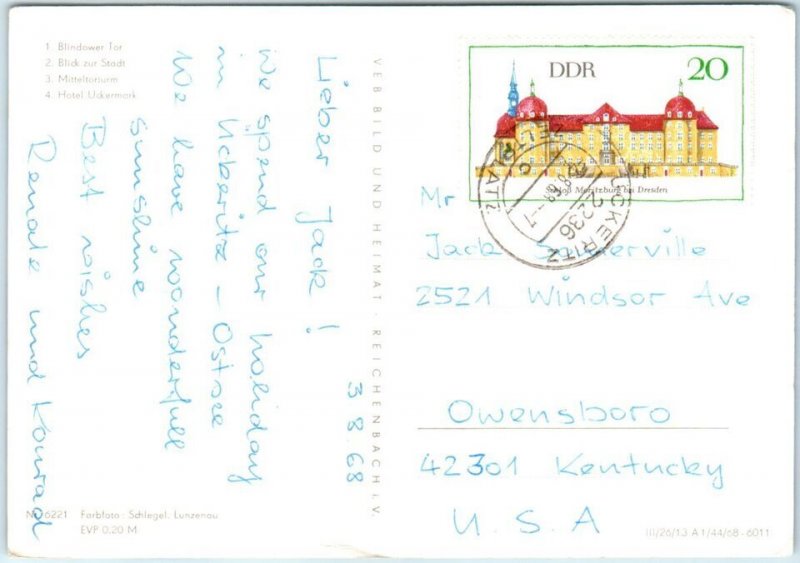 1. Blindower Tor
2. Blick zur Stadt
3. Mitteltorturm
4. Hotel Uckermark
Lieber Jack!
We spend our holiday
in Ückeritz – Ostsee
We have woonderfull
sunshine
Best wishes
Renate und Konrad
3 8.68
Nr. 6221 Farbfoto: Schlegel, Lunzenau
EVP 0,20 M
VEB BILD UND HEIMAT · REICHENBACH i. V.
DDR 20
Schloß Moritzburg bei Dresden
2236 ÜCKERITZ
ZELTPLATZ
Mr
Jack Somerville
2521 Windsor Ave
Owensboro
42301 Kentucky
U.S.A
III/26/13 A 1/44/68 - 6011